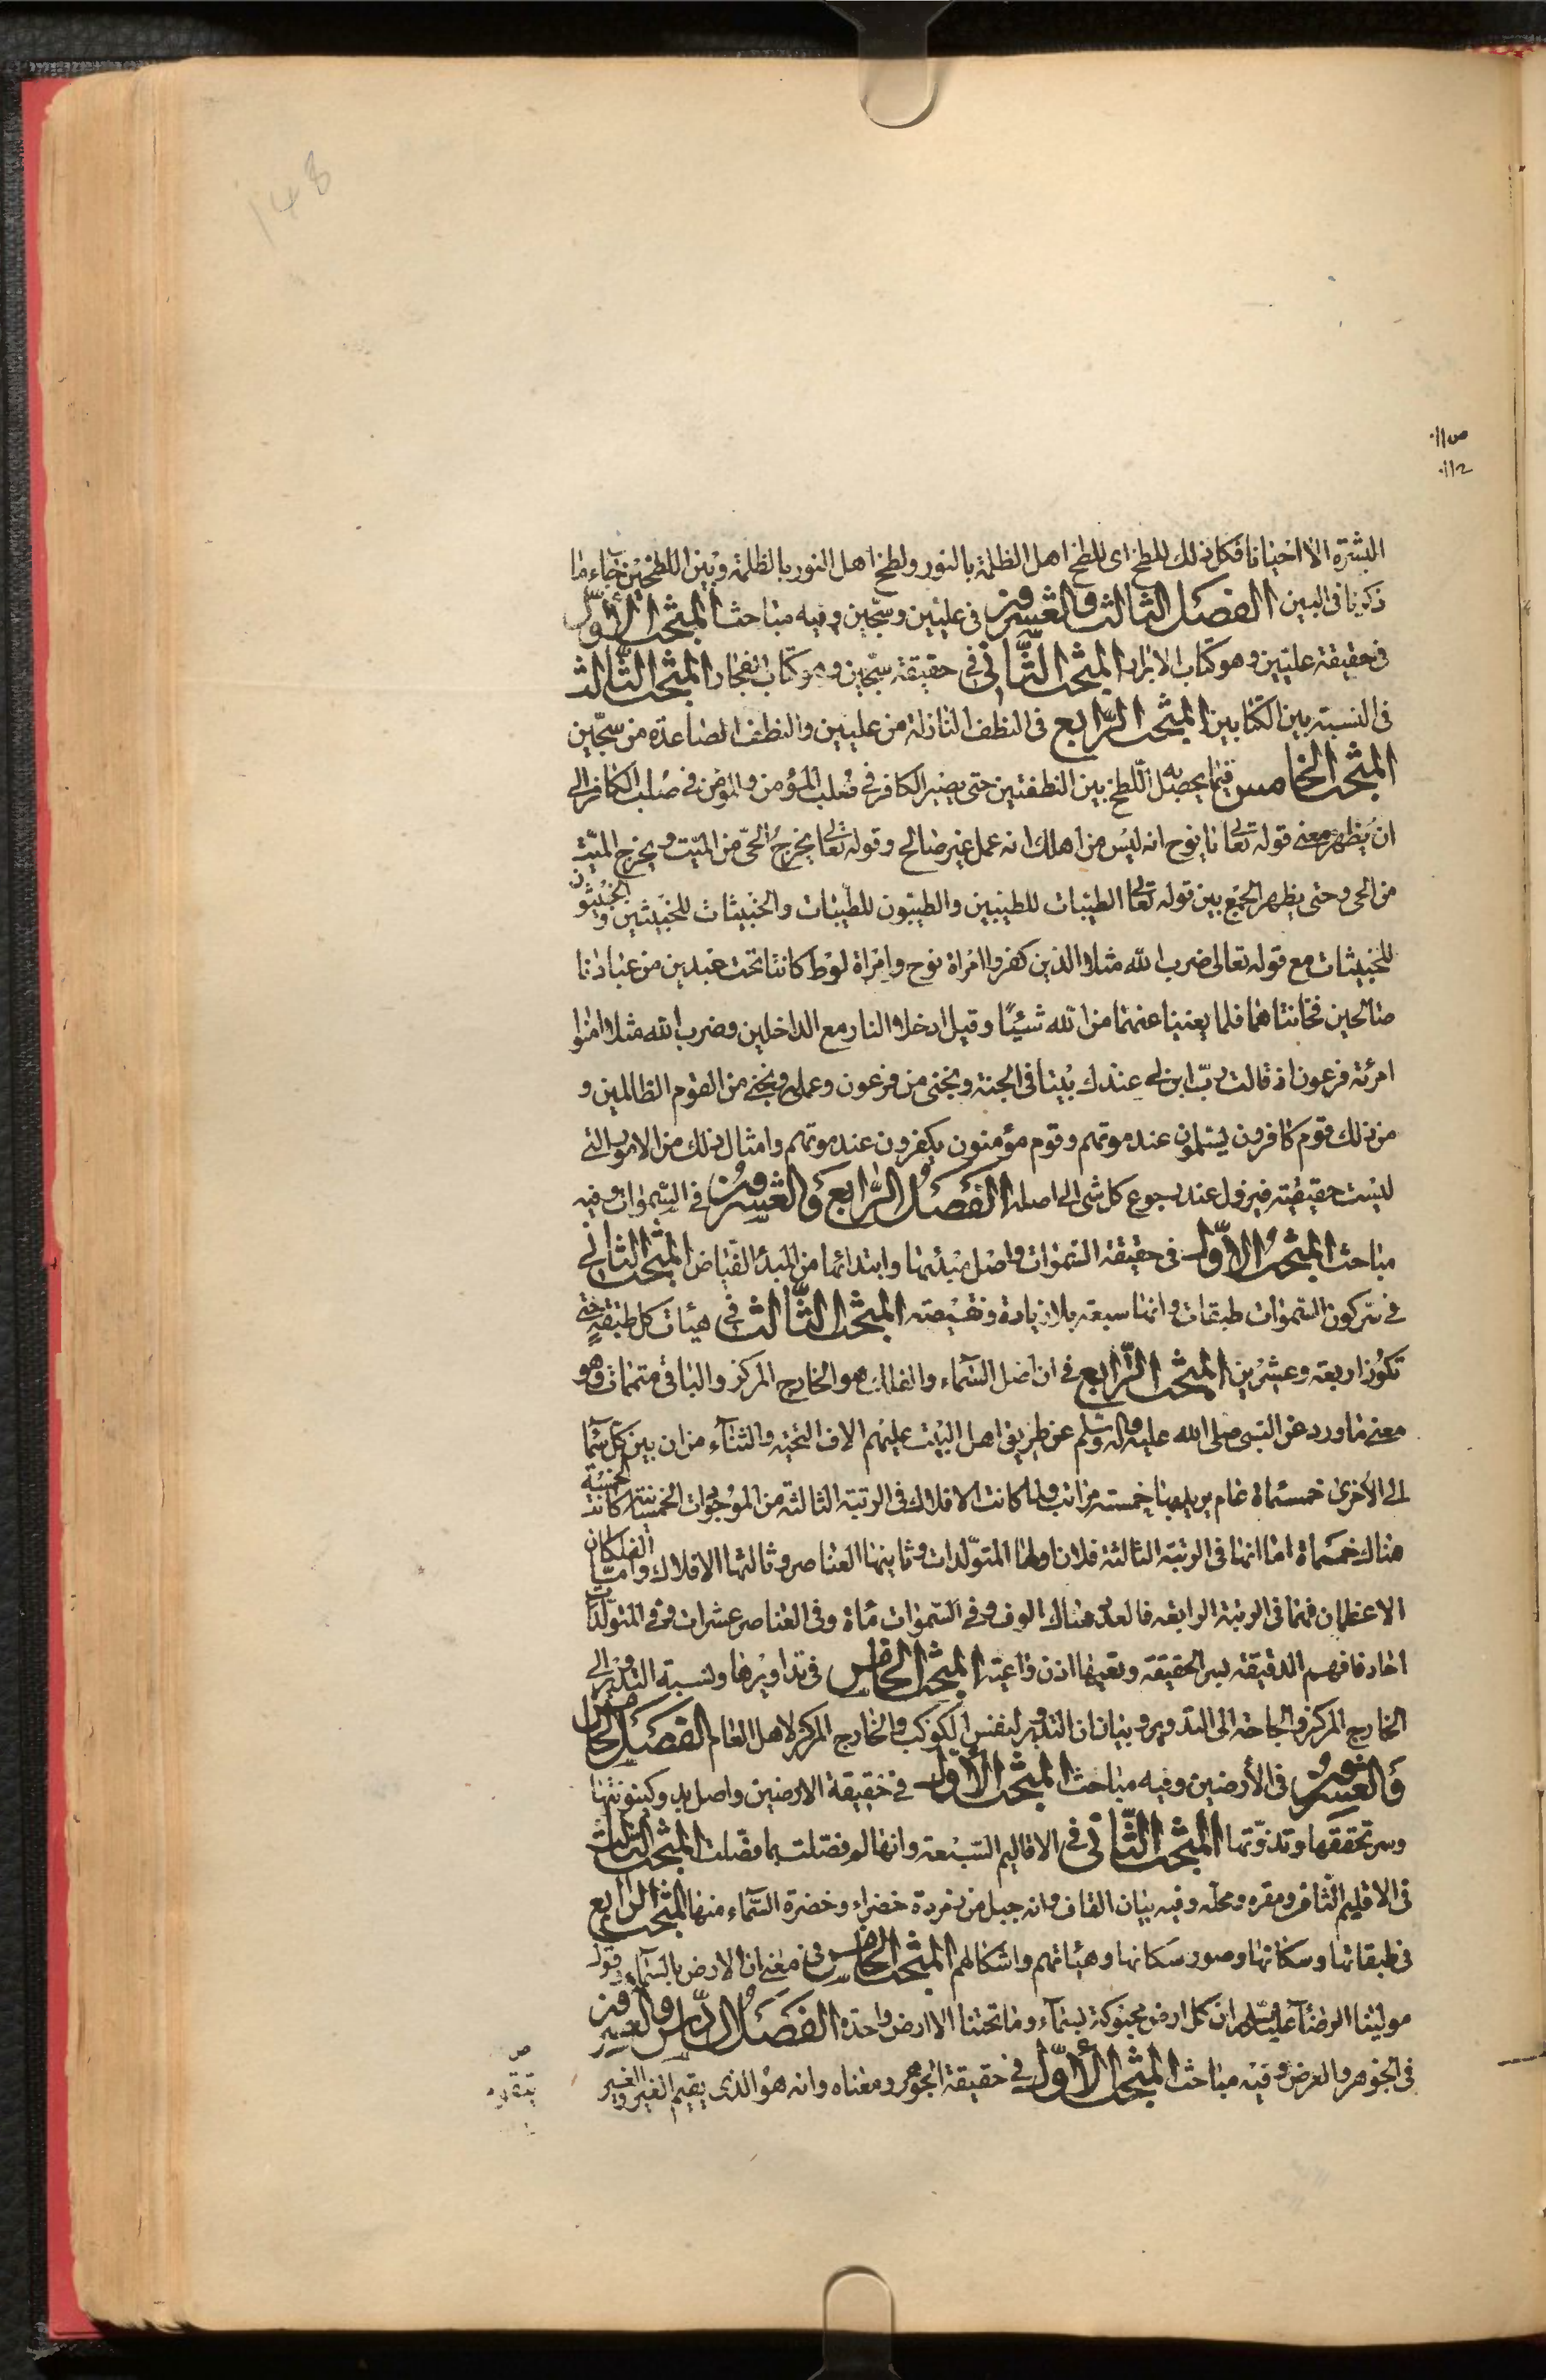 148
البشرة الا احيانا فكل ذلك للطخ اى للطخ اهل الظلمة بالنور ولطخ اهل النور بالظلمة وبين اللطخين جاء ما
ذكرنا فى البين الفصل الثالث والعشرون فى عليين وسجين وفيه مباحث المبحث الأول
فى حقيقة عليين وهو كتاب الابرار المبحث الثانى فى حقيقة سجين وهو كتاب الفجار المبحث الثالث
فى النسبة بين الكتابين المبحث الرابع فى النطف النازلة من عليين والنطف الصاعدة من سجين
المبحث الخامس فيما يحصل به اللطخ بين النطفتين حتى يصير الكافر فى صلب المؤمن والمؤمن فى صلب الكافر الى
ان يظهر معنى قوله تعالى يا نوح انه ليس من اهلك انه عمل غير صالح وقوله تعالى يخرج الحى من الميت ويخرج الميت
من الحى وحتى يظهر الجمع بين قوله تعالى الطيبات للطيبين والطيبون للطيبات والخبيثات للخبيثين والخبيثون
للخبيثات مع قوله تعالى ضرب الله مثلا للذين كفروا امراة نوح وامراة لوط كانتا تحت عبدين من عبادنا
صالحين فخانتاهما فلم يغنيا عنهما من الله شيئا وقيل ادخلا النار مع الداخلين وضرب الله مثلا امنوا
امرئة فرعون اذ قالت رب ابن لى عندك بيتا فى الجنة ونجنى من فرعون وعمله ونجنى من القوم الظالمين و
من ذلك قوم كافرون يسلمون عند موتهم وقوم مؤمنون يكفرون عند موتهم وامثال ذلك من الامور التى
ليست حقيقته فيزول عند رجوع كل شى الى اصله الفصل الرابع والعشرون فى السموات وفيه
مباحث المبحث الأول فى حقيقة السموات واصل مبدئها وابتدائها من المبدء الفياض المبحث الثانى
فى سر كون السموات طبقات وانها سبعة بلا زيادة ونقيصة المبحث الثالث فى هيئات كل طبقة حتى
تكون اربعة وعشرين المبحث الرابع فى ان اصل السماء والفلك هو الخارج المركز والباقى متممات وهو
معنى ما ورد عن النبى صلى الله عليه واله وسلم عن طريق اهل البيت عليهم الاف التحية والثناء من ان بين كل سماء
الى الأخرى خمسماة عام يريد بها خمسة مراتب ولما كانت الافلاك فى الرتبة الثالثة من الموجودات الخمسة كانت الخمسة
هناك خمسماة اما انها فى الرتبة الثالثة فلان اولها المتولدات وثانيها العناصر وثالثها الافلاك واما الفلكان
الاعظمان فهما فى الرتبة الرابعة فالعدد هناك الوف وفى السموات مأة وفى العناصر عشرات وفى المتولدات
احاد فافهم الدقيقة لسر الحقيقة وتعيها اذن واعية المبحث الخامس فى تداويرها ونسبة التدوير الى
الخارج المركز والحاجة الى التدوير وبيان ان التدوير لنفس الكوكب والخارج المركز لاهل العام الفصل الخامس
والعشرون فى الأرضين وفيه مباحث المبحث الأول فى حقيقة الارضين واصل بدء وكينونتها
وسر تحققها وتذوتها المبحث الثانى فى الاقاليم السبعة وانها لم فصلت بما فصلت المبحث الثالث
فى الاقليم الثامن ومقره ومحله وفيه بيان القاف وانه جبل من زمردة خضراء وخضرة السماء منها المبحث الرابع
فى طبقاتها وسكانها وصور سكانها وهيئاتهم واشكالهم المبحث الخامس فى معنى ان الارض بالسماء فى قول
مولينا الرضا عليه السلام ان كل ارض محبوكة بسماء وما تحتنا الا ارض واحدة الفصل السادس والعشرون
فى الجوهر والعرض وفيه مباحث المبحث الأول فى حقيقة الجوهر ومعناه وانه هو الذى يقيم الغير والغير